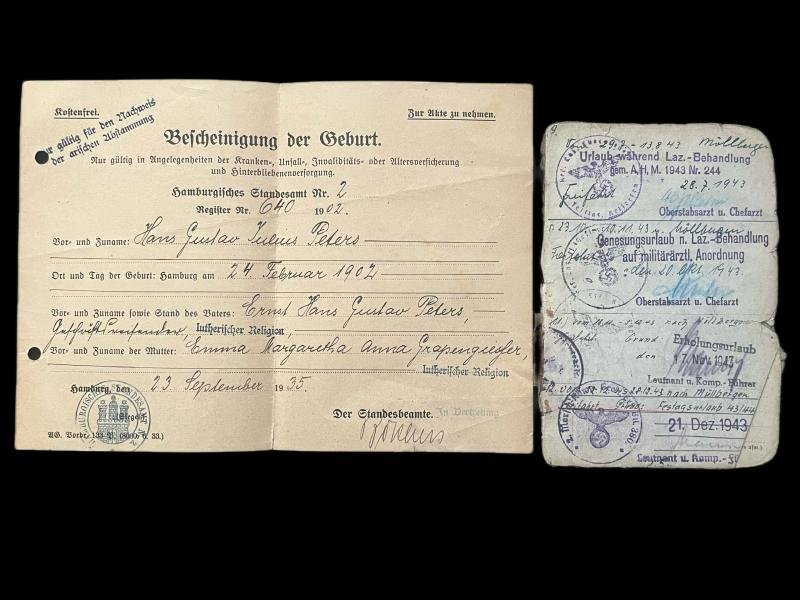 Kostenfrei.
Zur Akte zu nehmen.
gültig für den Nachweis
der arischen Abstammung
Bescheinigung der Geburt.
Nur gültig in Angelegenheiten der Kranken-, Unfall-, Invaliditäts- oder Altersversicherung
und Hinterbliebenenversorgung.
Hamburgisches Standesamt Nr. 2
Register Nr. 640 1902.
Vor- und Zuname: Hans Gustav Julius Peters
Ort und Tag der Geburt: Hamburg am 24 Februar 1902
Vor- und Zuname sowie Stand des Vaters: Ernst Hans Gustav Peters,
Geschäftsreisender, lutherischer Religion,
Vor- und Zuname der Mutter: Emma Margaretha Anna Grapengießer,
lutherischer Religion
Hamburg, den 23 September 1935.
Der Standesbeamte.
In Vertretung
29.7. - 13.8.43 Möllbergen
Urlaub während Laz.-Behandlung
gem. A.H.M. 1943 Nr. 244
28.7.1943
Freifahrt
Oberstabsarzt u. Chefarzt
10.11.43 n. Möllbergen
Genesungsurlaub n. Laz.-Behandlung
auf militärärztl. Anordnung
den 30. Okt. 1943.
Oberstabsarzt u. Chefarzt
nach Möllbergen
Grund: Erholungsurlaub
den 17. Nov. 1943
Leutnant u. Komp.-Führer
28.12.43 nach Möllbergen
Festagsurlaub 43/44
21. Dez. 1943
Leutnant u. Komp.-